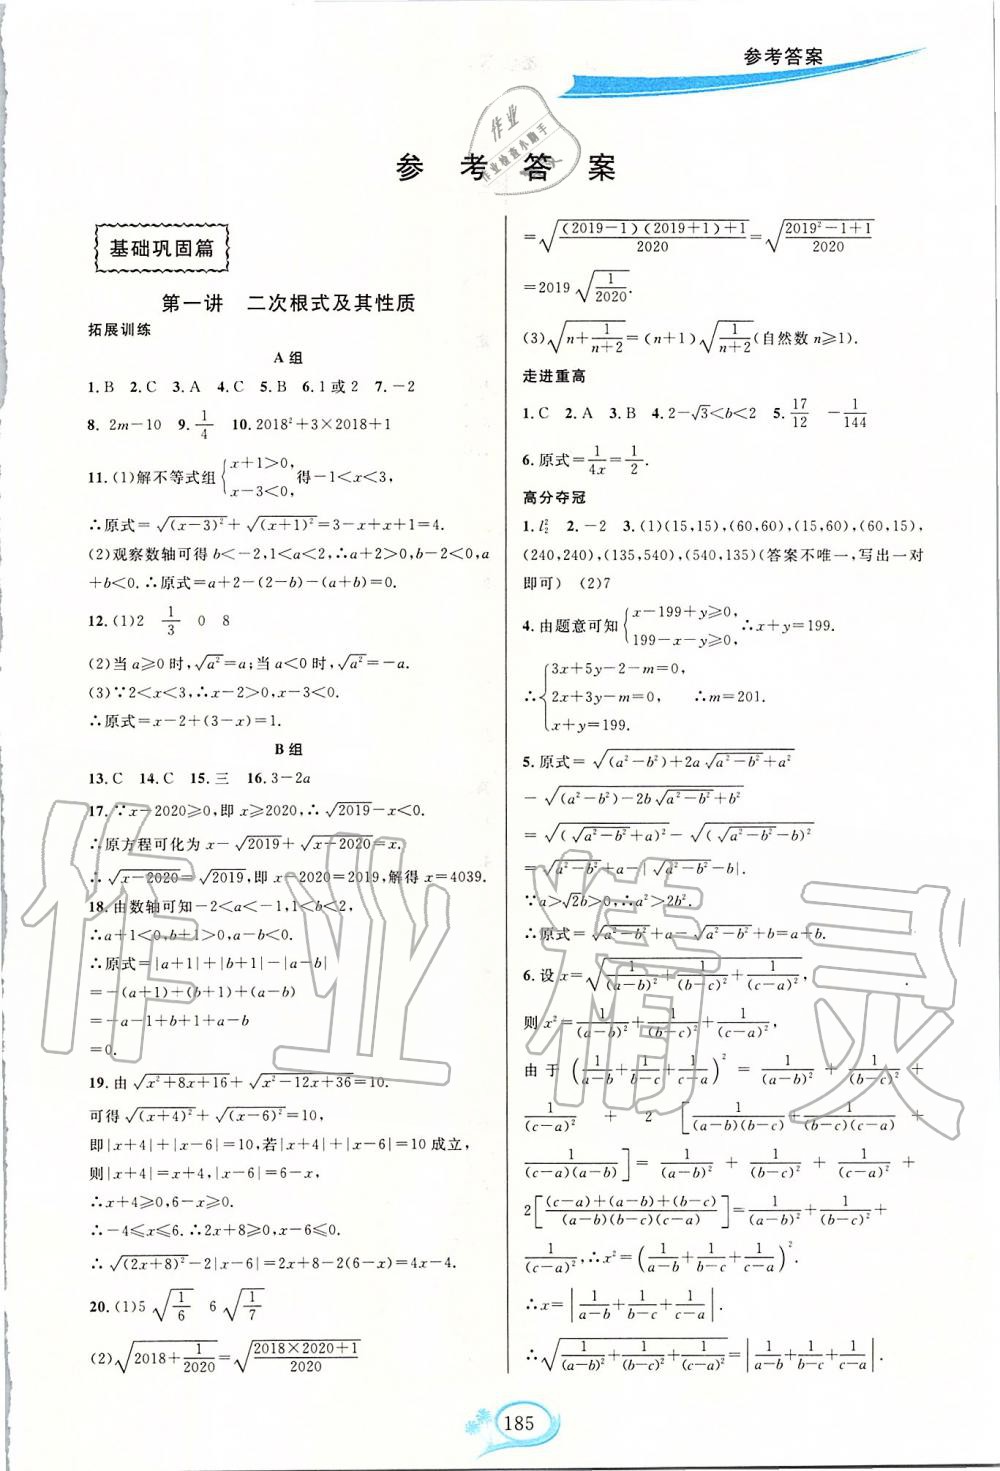 参考答案
参 考 答 案
作业
作业检查小助手
基础巩固篇
第一讲 二次根式及其性质
拓展训练
A 组
1. B 2. C 3. A 4. C 5. B 6. 1 或 2 7. －2
8. 2m－10 9. 1/4 10. 2018²＋3×2018＋1
11. (1)解不等式组{x＋1＞0, x－3＜0, 得－1＜x＜3,
∴原式＝√(x－3)²＋√(x＋1)²＝3－x＋x＋1＝4.
(2)观察数轴可得 b＜－2,1＜a＜2,∴a＋2＞0,b－2＜0,a
＋b＜0.∴原式＝a＋2－(2－b)－(a＋b)＝0.
12. (1)2 1/3 0 8
(2)当 a≥0 时,√a²＝a;当 a＜0 时,√a²＝－a.
(3)∵2＜x＜3,∴x－2＞0,x－3＜0.
∴原式＝x－2＋(3－x)＝1.
B 组
13. C 14. C 15. 三 16. 3－2a
17. ∵x－2020≥0,即 x≥2020,∴√2019－x＜0.
∴原方程可化为 x－√2019＋√(x－2020)＝x.
∴√(x－2020)＝√2019,即 x－2020＝2019,解得 x＝4039.
18. 由数轴可知－2＜a＜－1,1＜b＜2,
∴a＋1＜0,b＋1＞0,a－b＜0.
∴原式＝|a＋1|＋|b＋1|－|a－b|
＝－(a＋1)＋(b＋1)＋(a－b)
＝－a－1＋b＋1＋a－b
＝0.
19. 由√(x²＋8x＋16)＋√(x²－12x＋36)＝10.
可得√(x＋4)²＋√(x－6)²＝10,
即|x＋4|＋|x－6|＝10,若|x＋4|＋|x－6|＝10 成立,
则|x＋4|＝x＋4,|x－6|＝6－x.
∴x＋4≥0,6－x≥0.
∴－4≤x≤6.∴2x＋8≥0,x－6≤0.
∴√(2x＋8)²－2|x－6|＝2x＋8－2(6－x)＝4x－4.
20. (1)5√(1/6) 6√(1/7)
(2)√(2018＋1/2020)＝√((2018×2020＋1)/2020)
＝√(((2019－1)(2019＋1)＋1)/2020)＝√((2019²－1＋1)/2020)
＝2019√(1/2020).
(3)√(n＋1/(n＋2))＝(n＋1)√(1/(n＋2))(自然数 n≥1).
走进重高
1. C 2. A 3. B 4. 2－√3＜b＜2 5. 17/12 －1/144
6. 原式＝1/4x＝1/2.
高分夺冠
1. l₂² 2. －2 3. (1)(15,15),(60,60),(15,60),(60,15),
(240,240),(135,540),(540,135)(答案不唯一,写出一对
即可) (2)7
4. 由题意可知{x－199＋y≥0, 199－x－y≥0, ∴x＋y＝199.
∴{3x＋5y－2－m＝0, 2x＋3y－m＝0, x＋y＝199. ∴m＝201.
5. 原式＝√((a²－b²)＋2a√(a²－b²)＋a²)
－√((a²－b²)－2b√(a²－b²)＋b²)
＝√(√(a²－b²)＋a)²－√(√(a²－b²)－b)²
＝√(a²－b²)＋a－|√(a²－b²)－b|.
∵a＞√2b＞0,∴a²＞2b².
∴原式＝√(a²－b²)＋a－√(a²－b²)＋b＝a＋b.
6. 设 x＝√(1/(a－b)²＋1/(b－c)²＋1/(c－a)²),
则 x²＝1/(a－b)²＋1/(b－c)²＋1/(c－a)²,
由于(1/(a－b)＋1/(b－c)＋1/(c－a))²＝1/(a－b)²＋1/(b－c)²＋
1/(c－a)²＋2[1/((a－b)(b－c))＋1/((b－c)(c－a))＋
1/((c－a)(a－b))]＝1/(a－b)²＋1/(b－c)²＋1/(c－a)²＋
2[((c－a)＋(a－b)＋(b－c))/((a－b)(b－c)(c－a))]＝1/(a－b)²＋1/(b－c)²＋
1/(c－a)²,∴x²＝(1/(a－b)＋1/(b－c)＋1/(c－a))².
∴x＝|1/(a－b)＋1/(b－c)＋1/(c－a)|.
∴√(1/(a－b)²＋1/(b－c)²＋1/(c－a)²)＝|1/(a－b)＋1/(b－c)＋1/(c－a)|.
作业精灵
185